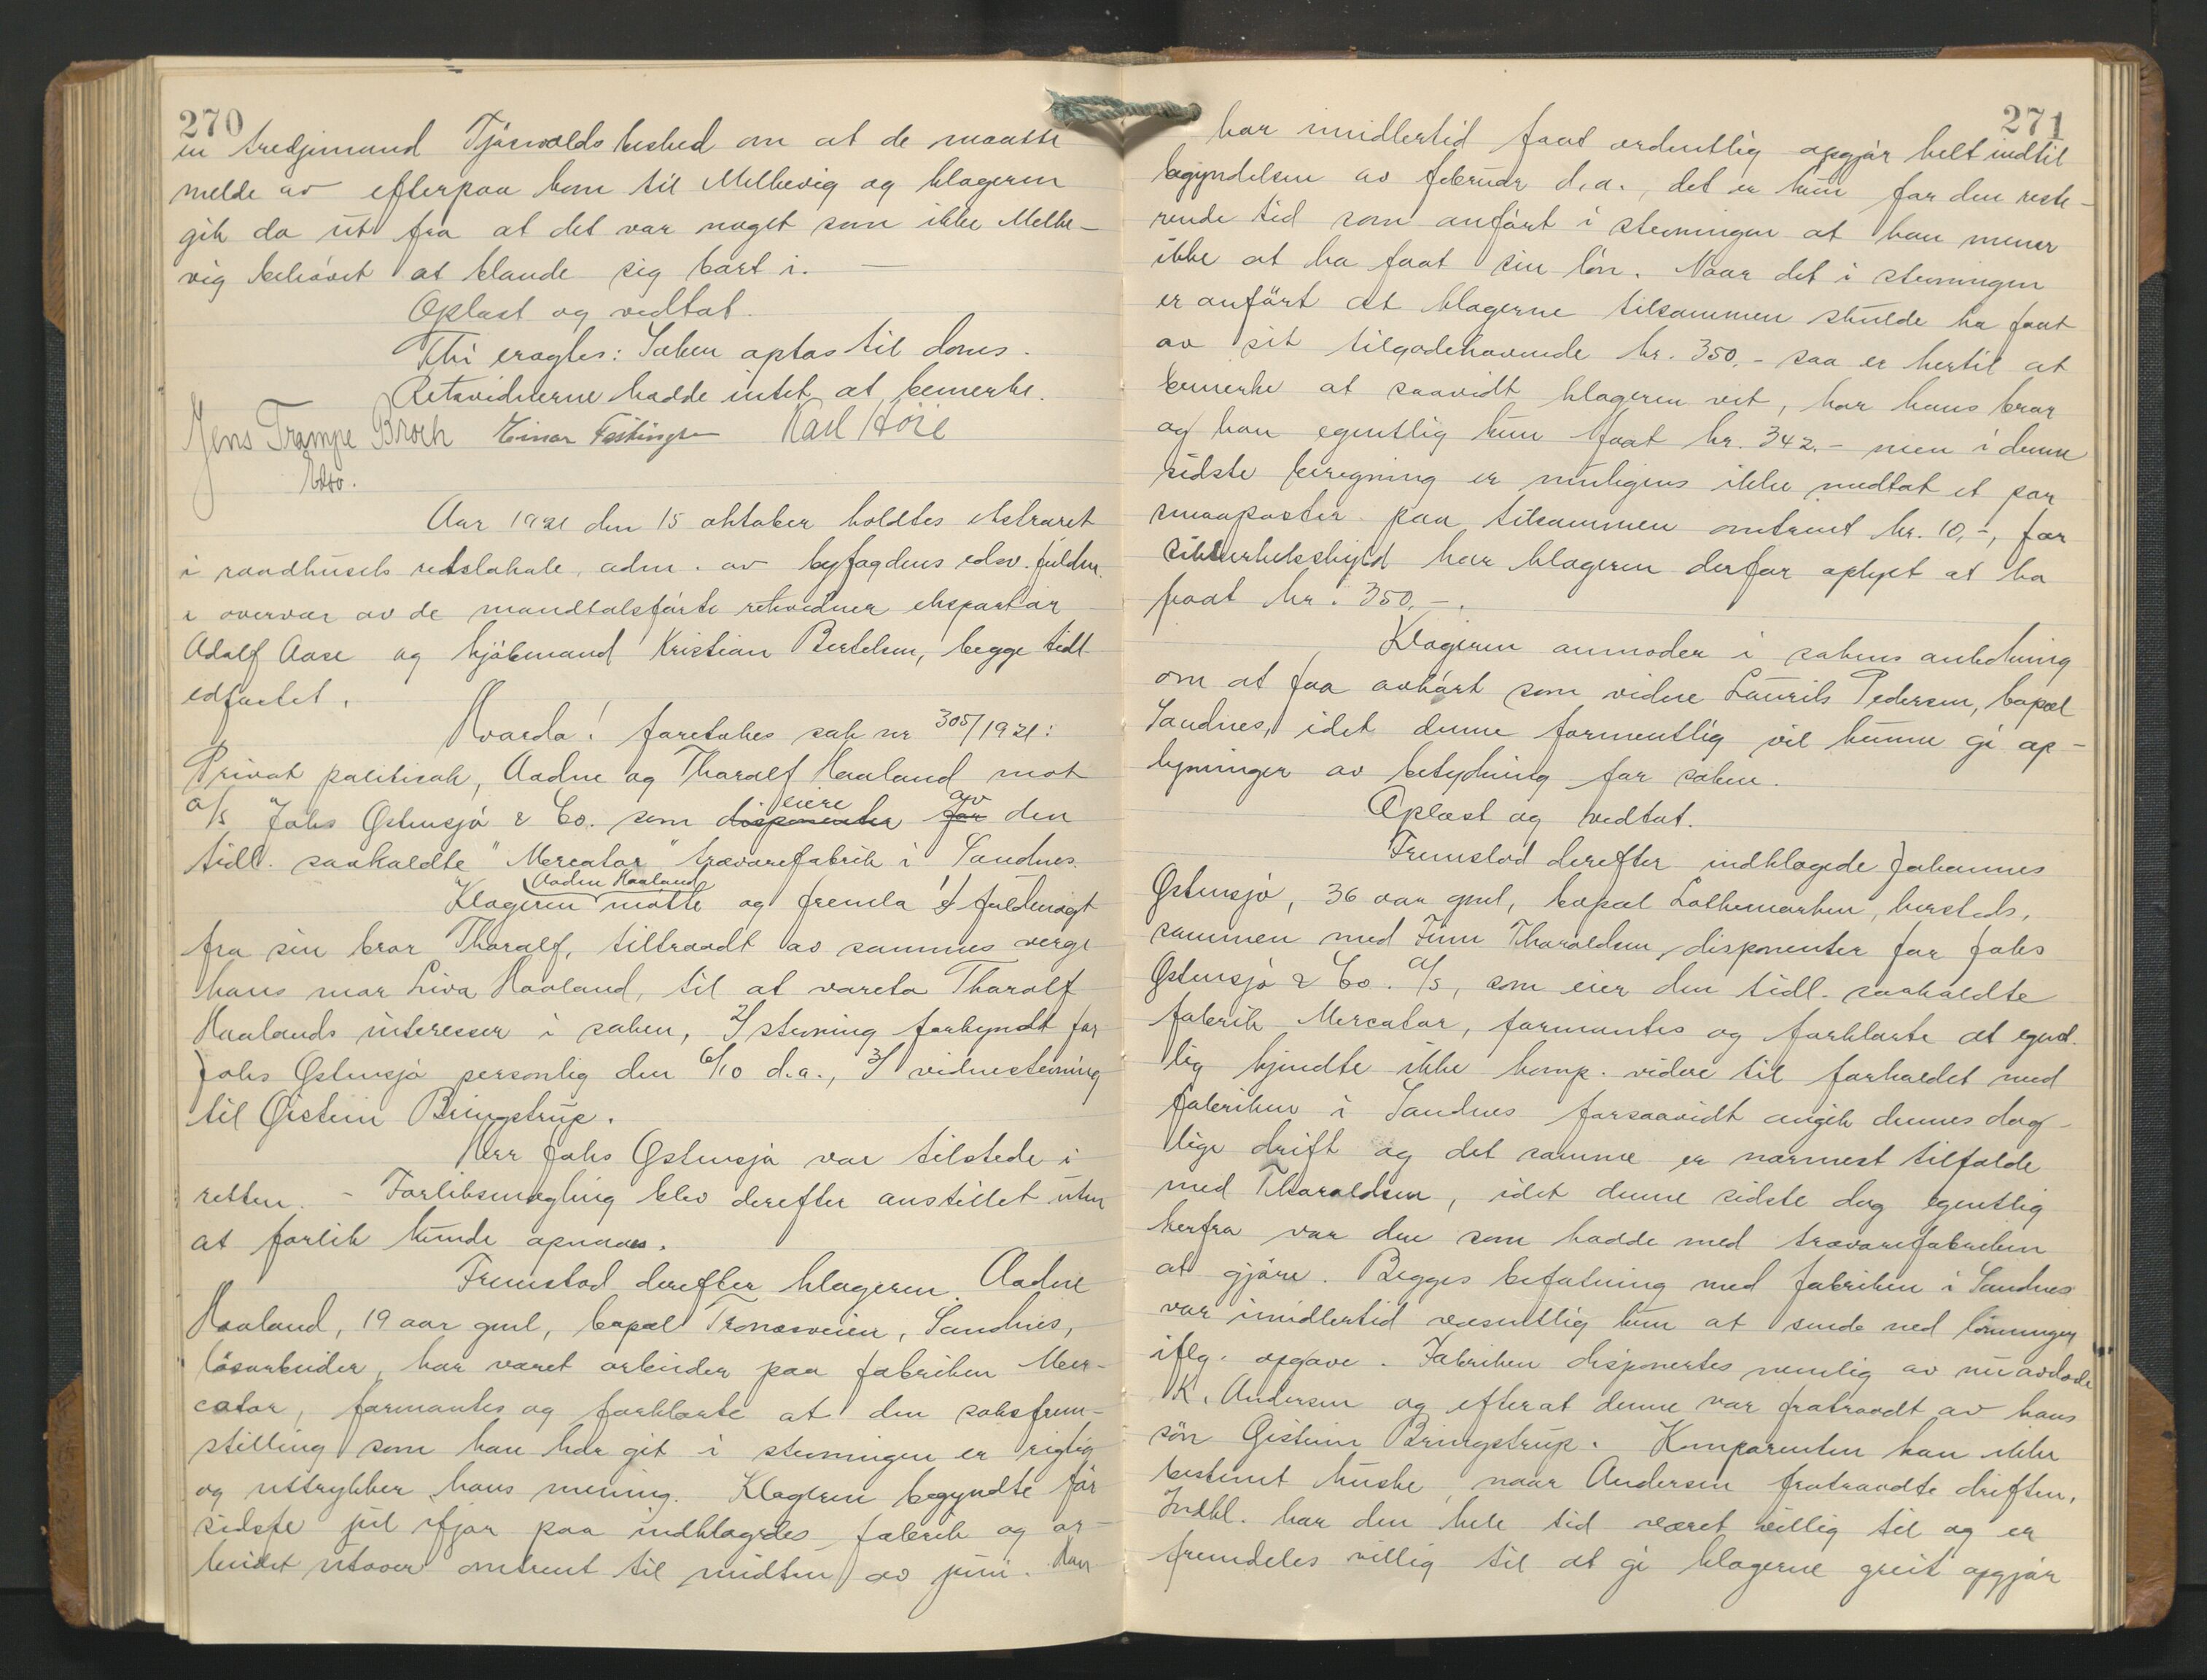 270
en tredjemand Tjøsvolds besked om at de maatte
melde av efterpaa kom til Melkevig og klageren
gik da ut fra at det var noget som ikke Melke-
vig behøvet at blande sig bort i. —
Oplæst og vedtat.
Thi eragtes: Saken optas til doms.
Retsvidnerne hadde intet at bemerke.
Jens Trampe Broch Einar Karl Höie
Edsv.
Aar 1921 den 15 oktober holdtes ekstraret
i raadhusets retslokale, adm. av byfogdens edsv. fuldm.
i overvær av de mandtalsførte retsvidner eksportør
Adolf Aase og kjøbmand Kristian Bertelsen, begge tidl
edfæstet.
Hvorda! foretokes sak nr 305/1921:
Privat politisak, Aadne og Tharalf Haaland mot
a/s Johs Østensjø & Co. som disponenter eiere for av den
tidl. saakaldte "Mercator" trævarefabrik i Sandnes.
Klageren Aadne Haaland møtte og fremla 1/ fuldmagt
fra sin bror Tharalf, tiltraadt av sammes verge
hans mor Liva Haaland, til at vareta Tharalf
Haalands interesser i saken, 2/ stevning forkyndt for
Johs Østensjø personlig den 6/10 d.a., 3/ vidnestevning
til Øistein Bringstrup.
Herr Johs Østensjø var tilstede i
retten. – Forliksmægling blev derefter anstillet uten
at forlik kunde opnaaes.
Fremstod derefter klageren Aadne
Haaland, 19 aar gml, bopæl Tronæsveien, Sandnes,
løsarbeider, har været arbeider paa fabriken Mer-
cator, formantes og forklarte at den saksfrem-
stilling som han har git i stevningen er rigtig
og uttrykker hans mening. Klageren begyndte før
sidste jul ifjor paa indklagedes fabrik og ar-
beidet utover omtrent til midten av juni. Han
271
har imidlertid faat ordentlig opgjør helt indtil
begyndelsen av februar d.a., det er kun for den reste-
rende tid som anført i stevningen at han mener
ikke at ha faat sin løn. Naar det i stevningen
er anført at klagerne tilsammen skulde ha faat
av sit tilgodehavende kr. 350.- saa er hertil at
bemerke at saavidt klageren vet, har hans bror
og han egentlig kun faat kr. 342.- men i denne
sidste beregning er muligens ikke medtat et par
smaaposter paa tilsammen omtrent kr. 10,-, for
sikkerhetsskyld har klageren derfor oplyst at ha
faat kr. 350.-.
Klageren anmoder i sakens anledning
om at faa avhørt som vidne Laurits Pedersen, bopæl
Sandnes, idet denne formentlig vil kunne gi op-
lysninger av betydning for saken.
Oplæst og vedtat.
Fremstod derefter indklagede Johannes
Østensjø, 36 aar gml, bopæl Lothemarken, hersteds,
sammen med Finn Tharaldsen, disponenter for Johs
Østensjø & Co. a/s, som eier den tidl. saakaldte
fabrik Mercator, formantes og forklarte at egent-
lig kjendte ikke komp. videre til forholdet med
fabriken i Sandnes forsaavidt angik dennes dag-
lige drift og det samme er nærmest tilfælde
med Tharaldsen, idet denne sidste dog egentlig
herfra var den som hadde med trævarefabriken
at gjøre. Begges befatning med fabriken i Sandnes
var imidlertid væsentlig kun at sende ned lønninger
iflg. opgave. Fabriken disponertes nemlig av nu avdøde
K. Andersen og efterat denne var fratraadt av hans
søn Øistein Bringstrup. Komparenten kan ikke
bestemt huske, naar Andersen fratraadte driften.
Indkl. har den hele tid været villig til og er
fremdeles villig til at gi klagerne greit opgjør